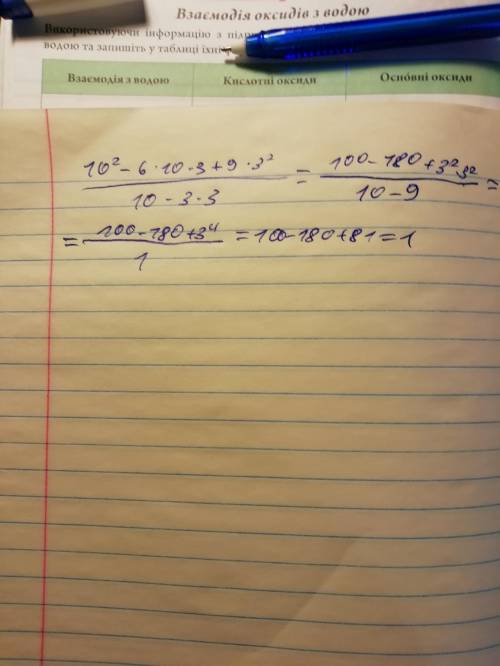 Взаємодія оксидів з водою
Використовуючи інформацію з
водою та запишіть у таблиці
Взаємодія з водою Кислотні оксиди Осно́вні оксиди
(10² - 6·10·3 + 9·3²)/(10 - 3·3) = (100 - 180 + 3²·3²)/(10 - 9) =
= (100 - 180 + 3⁴)/1 = 100 - 180 + 81 = 1